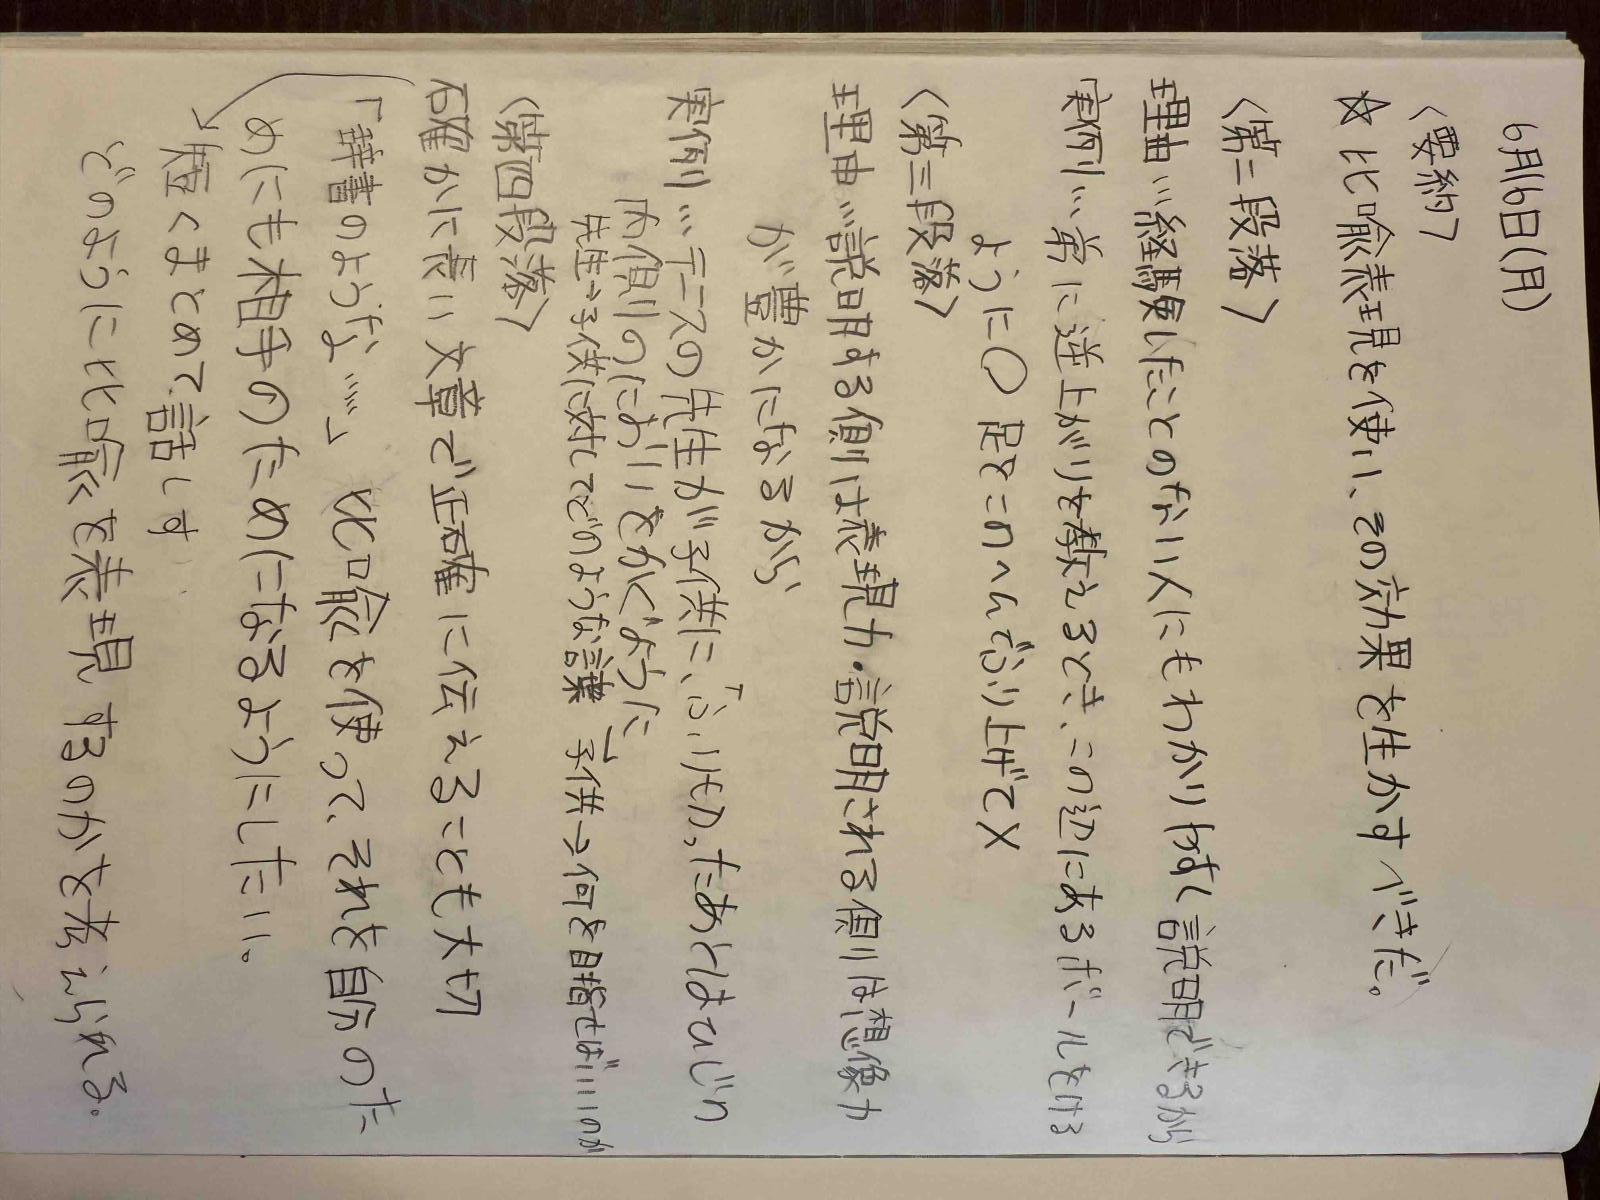 6月16日(月)
〈要約〉
☆比喩表現を使い、その効果を生かすべきだ。
〈第二段落〉
理由…経験したことのない人にもわかりやすく説明できるから
実例…弟に逆上がりを教えるとき、この辺にあるボールをける
ように○ 足をこのへんでふり上げて×
〈第三段落〉
理由…説明する側は表現力・説明される側は想像力
が豊かになるから
実例…テニスの先生が子供に、「ふりむいたあとはひじの
内側のにおいをかぐように」
先生→子供に対してどのような課 子供→何を目指せばいいのか
〈第四段落〉
確かに長い文章で正確に伝えることも大切
「辞書のような……」比喩を使って、それを自分のた
めにも相手のためになるようにしたい。
短くまとめて話し方
どのように比喩を表現するのかを考えられる。